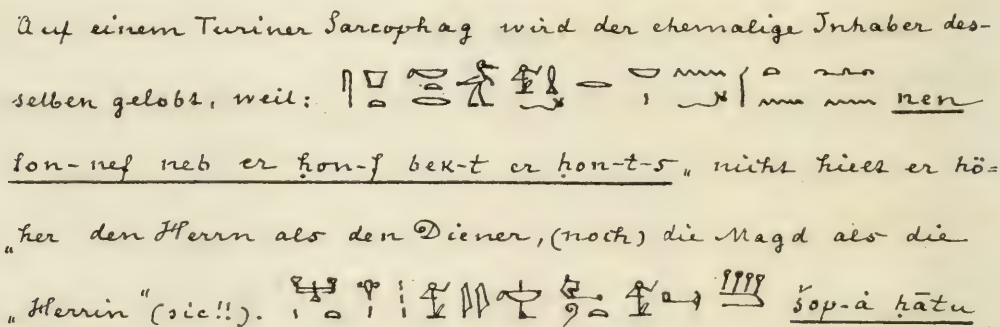 Auf einem Turiner Sarcophag wird der ehemalige Inhaber des-
selben gelobt, weil: nen
ton-nef neb er ḥon-f bek-t er ḥon-t-s „nicht hielt er hö=
„her den Herrn als den Diener, (noch) die Magd als die
„Herrin" (sic!!). šop-à ḥātu